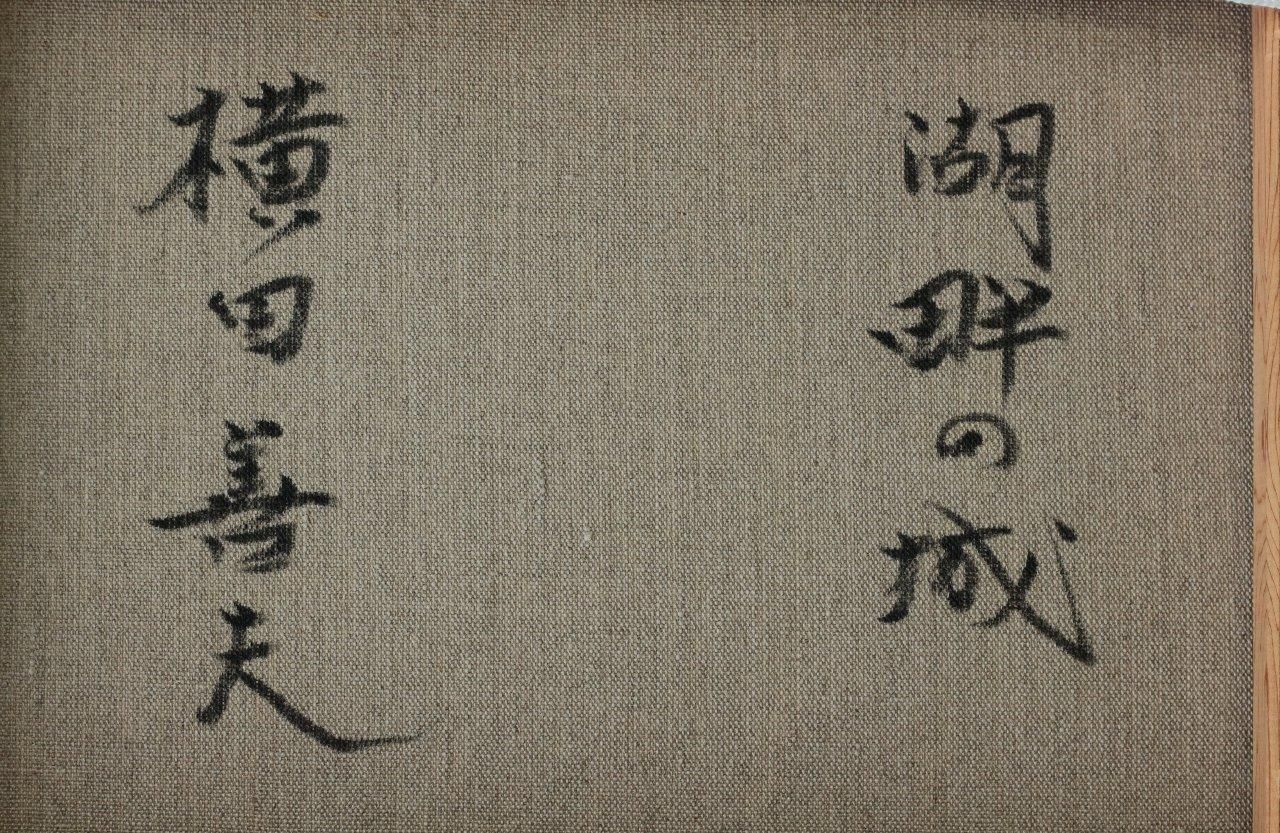 湖畔の城
横田善夫